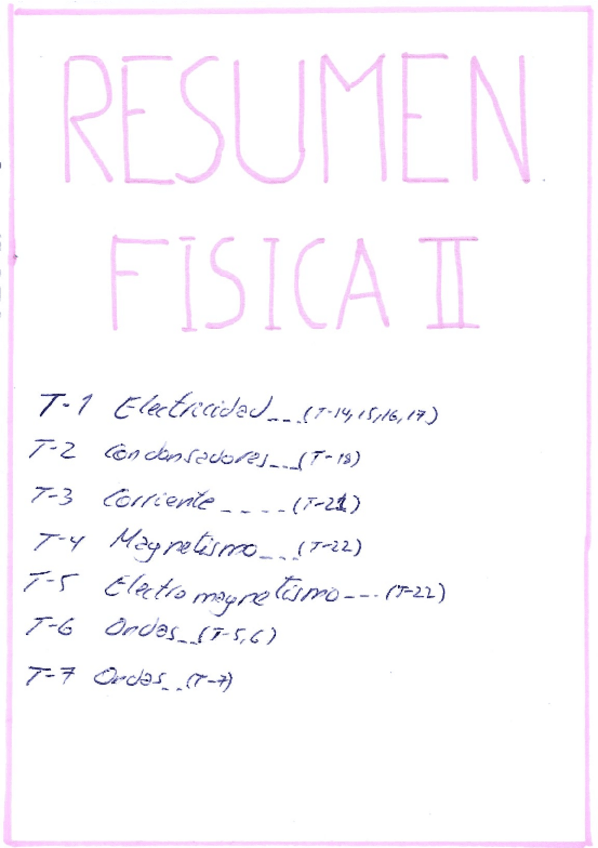 RESUMEN
FISICA II
T-1 Electricidad__(T-14,15,16,17)
T-2 Condensadores__(T-18)
T-3 Corriente ____(T-21)
T-4 Magnetismo__(T-22)
T-5 Electromagnetismo---(T-22)
T-6 Ondas__(T-5,6)
T-7 Ondas__(T-7)